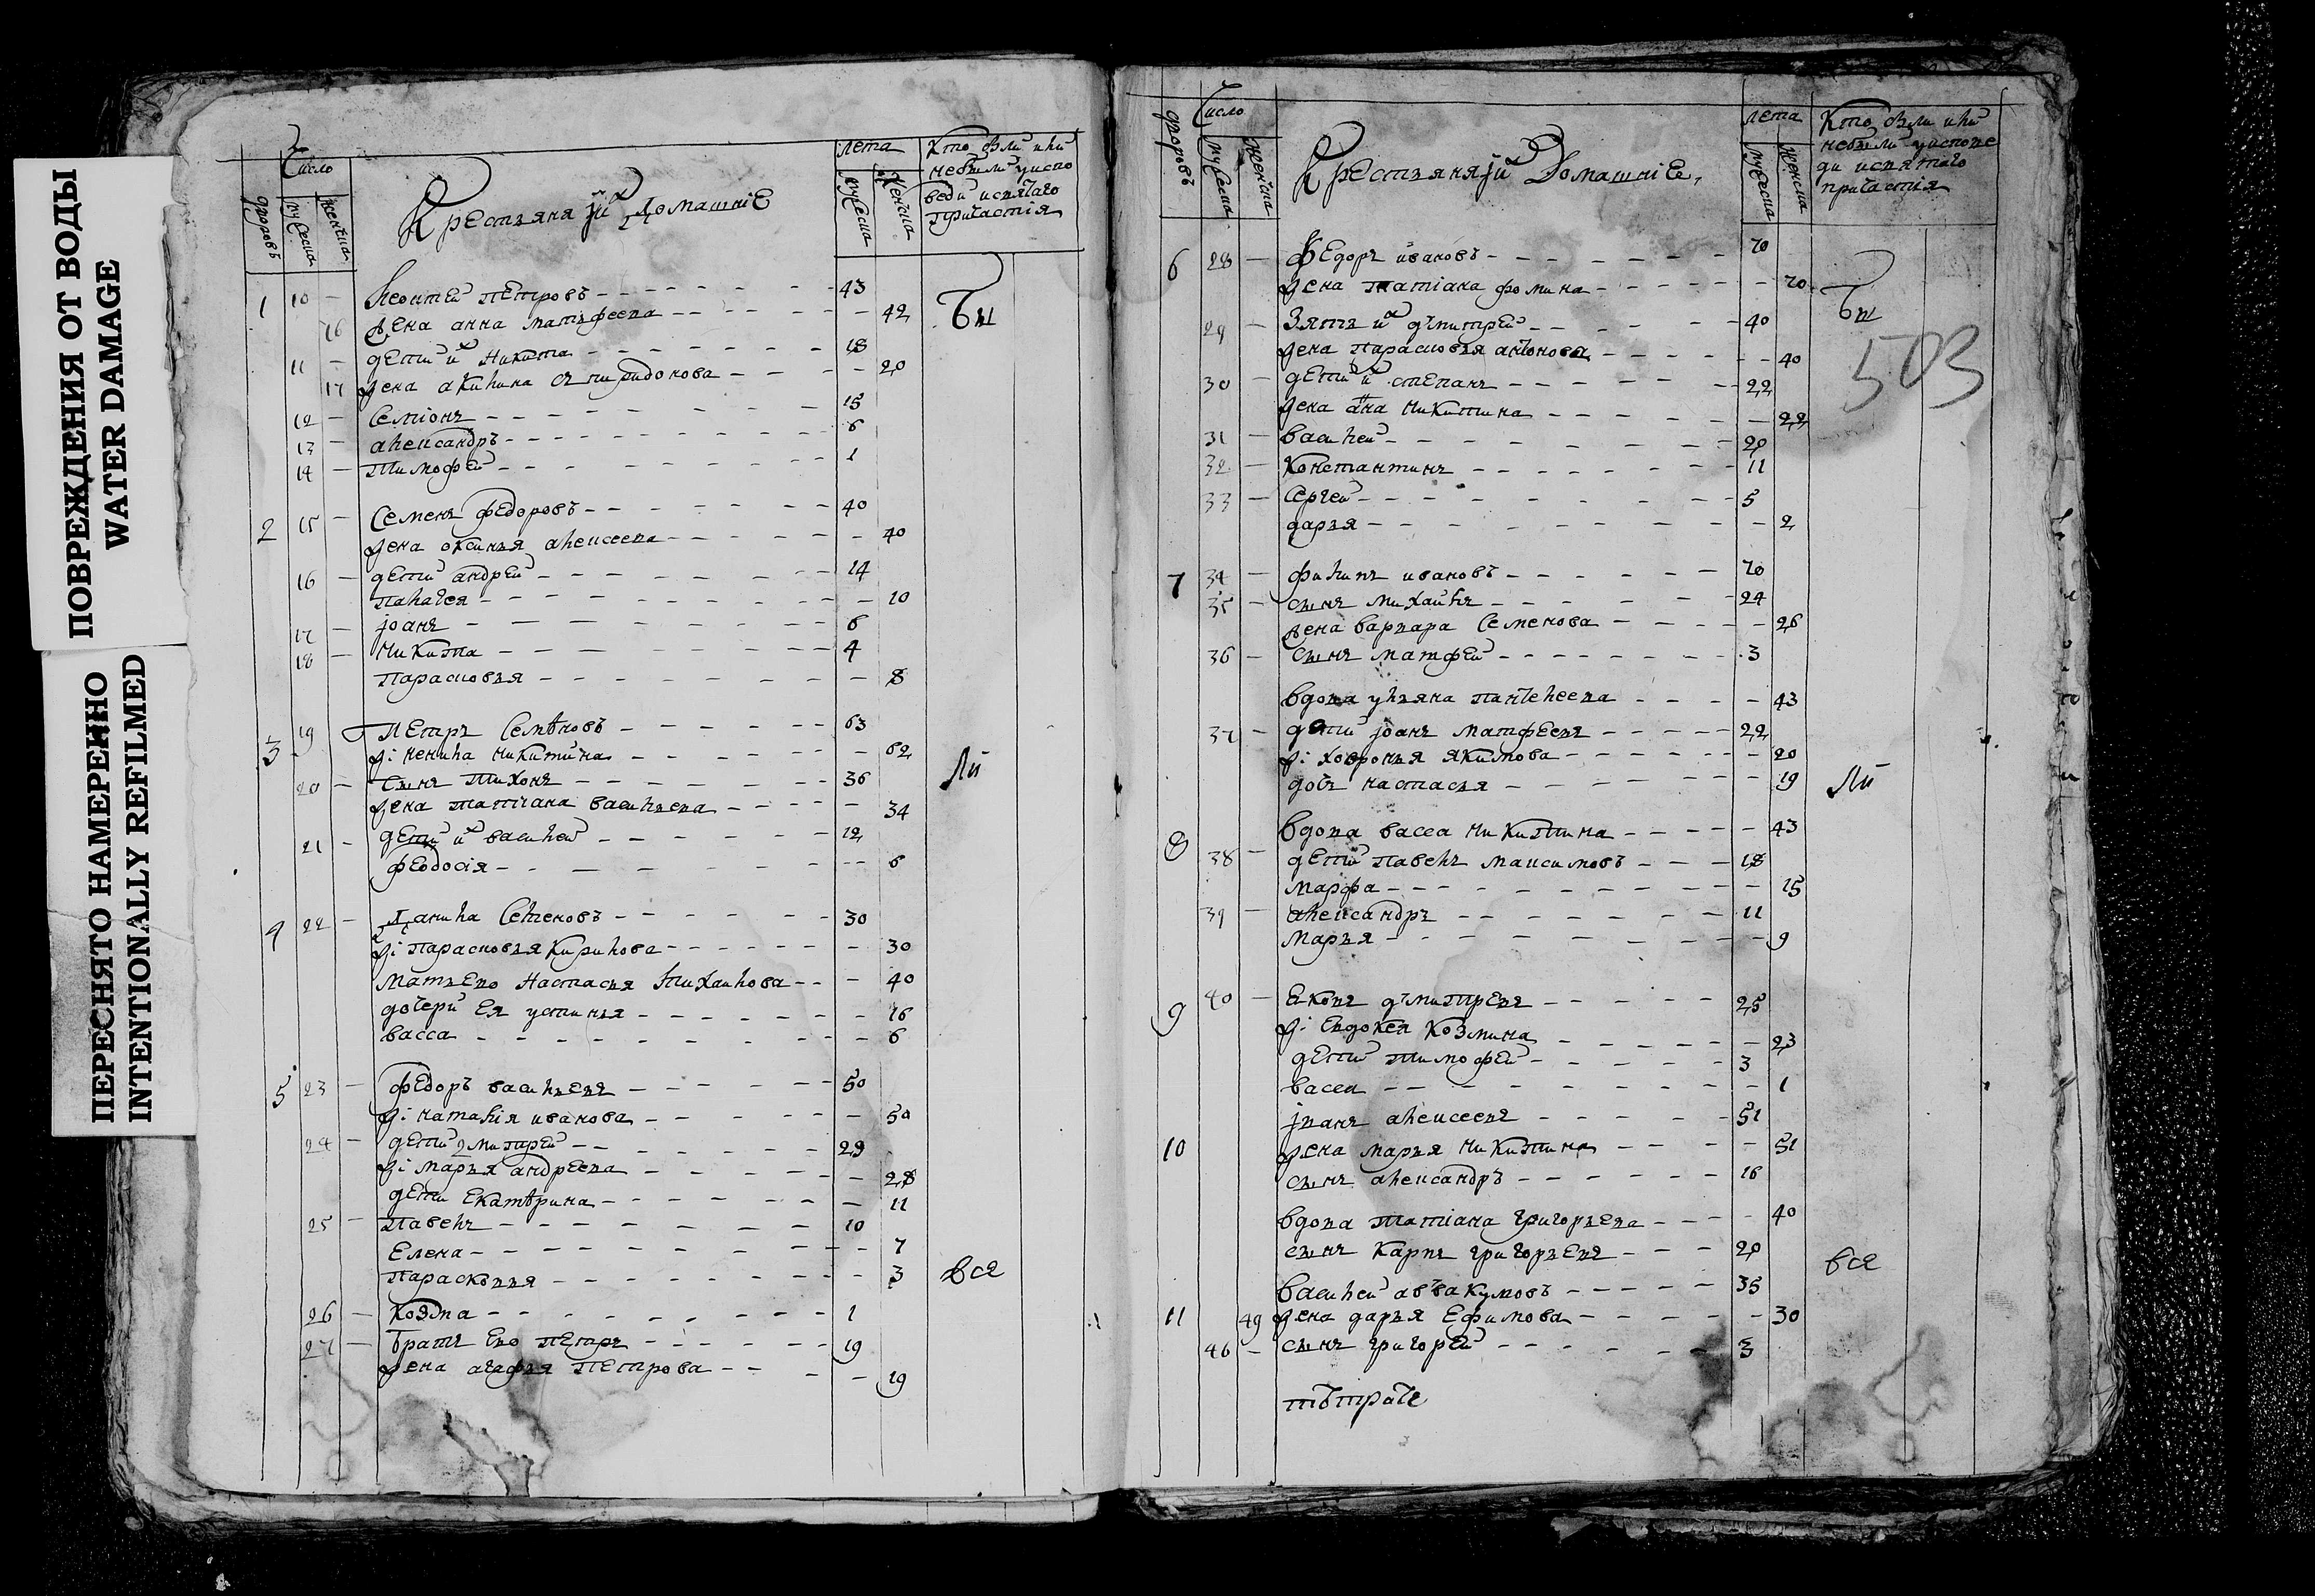 ПОВРЕЖДЕНИЯ ОТ ВОДЫ
WATER DAMAGE
ПЕРЕСНЯТО НАМЕРЕННО
INTENTIONALLY REFILMED
Число
дворовъ
мужеска
женска
Крестьяня їихъ Домашние
лета
мужеска
женска
Кто были или
небыли уиспо
веди исвятаго
причастия
1 10 – Леонтей петровъ 43
16 жена анна матфеева 42
11 – дети ихъ Никита 18
17 жена акилина спиридонова 20
12 – Семіонъ 15
13 – александръ 6
14 – Тимофей 1
Бы
2 15 – Семенъ федоровъ 40
жена оксинья алексеева 40
16 – дети андрей 14
палагея 10
17 – јоанъ 6
18 – никита 4
парасковья 8
3 19 петръ Семѣновъ 63
жі ненила никитина 62
20 – Сынъ Тихонъ 36
жена татіана васильева 34
21 – дети ихъ василей 12
феодосія 6
ли
4 22 – данила Семеновъ 30
жі парасковья кирилова 30
мать Ево Настасья михаилова 40
дочери Ея устинья 16
васса 6
5 23 – федоръ васильевъ 50
жі наталія иванова 50
24 – дети дмитрей 29
жі марья андреева 28
дети Екатѣрина 11
25 – павелъ 10
Елена 7
парасковья 3
26 – козма 1
27 – братъ Ево петръ 19
жена агафья петрова 19
вся
Число
дворовъ
мужеска
женска
Крестьяня їихъ Домашние
лета
мужеска
женска
Кто были или
небыли уиспове
ди исвятаго
причастія
6 28 – федоръ ивановъ 70
жена татіана фомина 70
29 – Зять ихъ дмитрей 40
жена парасковья антонова 40
30 – дети ихъ степанъ 22
жена анна никитина 22
31 – василей 20
32 – Константинъ 11
33 – Сергей 5
дарья 2
Бы
503
7 34 – филипъ ивановъ 70
35 – сынъ михаилъ 24
жена варвара Семенова 26
36 – сынъ матфей 3
вдова ульяна пантелеева 43
37 – дети јоанъ матфеевъ 22
жі ховронья якимова 20
дочь настасья 19
ли
8 вдова васса никитина 43
38 – дети павелъ максимовъ 18
марфа 15
39 – александръ 11
марья 9
9 40 – Яковъ дмитревъ 25
жі Евдокея козмина 23
дети тимофей 3
васса 1
јванъ алексеевъ 51
10 жена марья никитина 51
сынъ александръ 16
вдова татіана григорьева 40
сынъ карпъ григорьевъ 20
вся
василей аввакумовъ 35
11 49 жена дарья Ефимова 30
46 – сынъ григорей 3